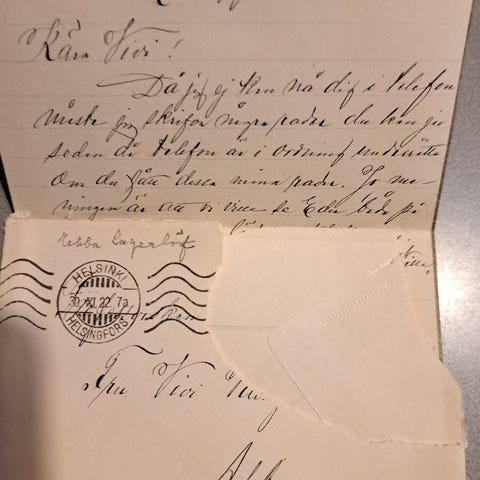 Kära Vivi!
Då jag ej kan nå dig i telefon
måste jag skrifva några rader du kan ju
sedan då telefon är i ordning underrätta
om du fått dessa mina rader. Jo me-
ningen är att vi ville se Eder båda på
Ebba Lagerlöf
HELSINKI
30.XI.22. 7a
HELSINGFORS
Fru Vivi